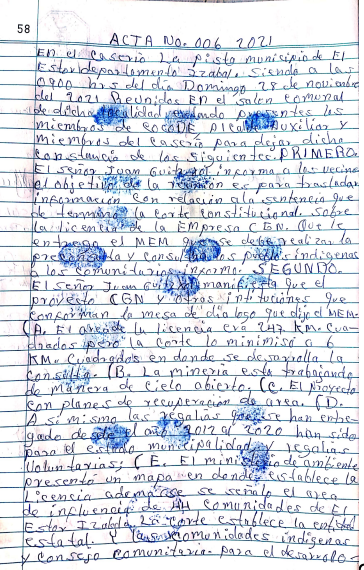 58
ACTA No. 006 2021
EN el caserio La pista municipio de El
Estor departamento Izabal. Siendo a las
0900 hrs del dia Domingo 28 de noviembre
del 2021 Reunidos EN el salon comunal
de dicha localidad estando presentes los
miembros de COCODE Alcalde Auxiliar y
miembros del caserio para dejar dicha
constancia de los siguiente. PRIMERO.
El señor Juan informa a los vecinos
el objetivo de la reunion es para trasladar
informacion con relación a la sentencia que
de termino la corte constitucional sobre
la licencia de la Empresa CGN. Que le
el MEM que se debe realizar la
pre y consulta los pueblos indigenas
a los comunitarios informo. SEGUNDO.
El señor Juan manifiesta que el
proyecto CGN y otras intituciones que
conforman la mesa de dialogo que dijo el MEM-
(A. El area de la licencia era 247 KM. Cua-
drados pero la corte lo minimisó a 6
KM. Cuadrados en donde se desarrolla la
consulta. (B. La mineria esta trabajando
de manera de cielo abierto; (C. El Proyecto
con planes de recuperación de area. (D.
A si mismo las regalias que se han entre-
gado desde el año 2012 al 2020 han sido
para el estado municipalidad y regalias
Voluntarias; (E. El ministerio de ambiente
presentó un mapa en donde establece la
Licencia ademas se señalo el area
de influencia de comunidades de El
Estor Izabal. La corte establece la entidad
estatal. y comunidades indigenas
y consejo comunitario para el desarrollo-